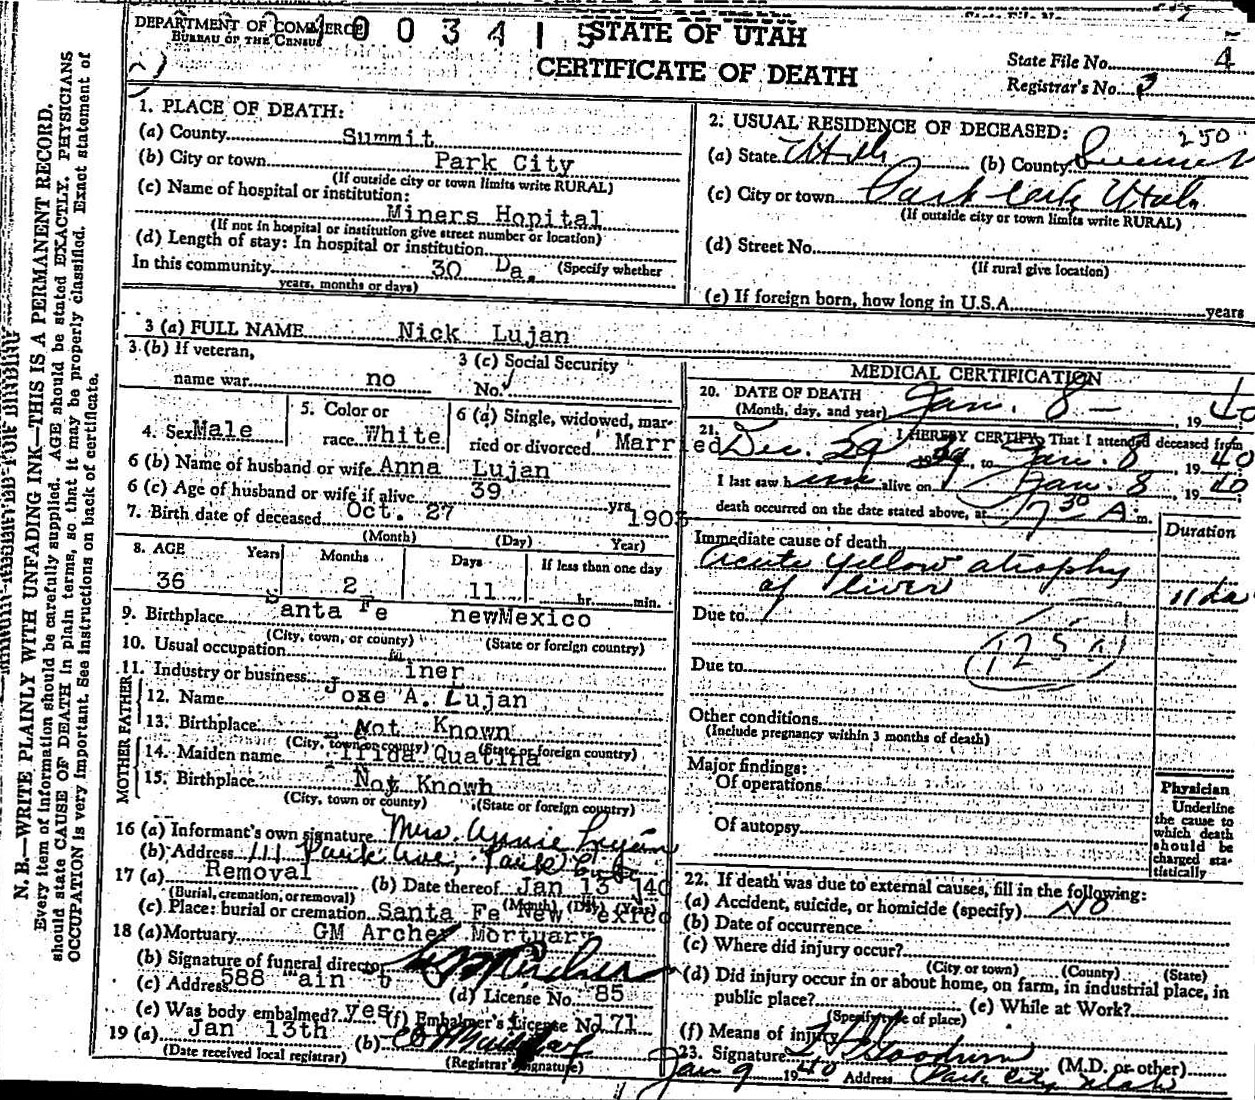 DEPARTMENT OF COMMERCE
BUREAU OF THE CENSUS
STATE OF UTAH
CERTIFICATE OF DEATH
State File No. 4
Registrar's No. 3
N. B.—WRITE PLAINLY WITH UNFADING INK—THIS IS A PERMANENT RECORD.
Every item of information should be carefully supplied. AGE should be stated EXACTLY. PHYSICIANS
should state CAUSE OF DEATH in plain terms, so that it may be properly classified. Exact statement of
OCCUPATION is very important. See instructions on back of certificate.
1. PLACE OF DEATH:
(a) County Summit
(b) City or town Park City
(If outside city or town limits write RURAL)
(c) Name of hospital or institution:
Miners Hopital
(If not in hospital or institution give street number or location)
(d) Length of stay: In hospital or institution
In this community 30 Da. (Specify whether
years, months or days)
2. USUAL RESIDENCE OF DECEASED: 250
(a) State Utah (b) County Summit
(c) City or town Park City Utah
(If outside city or town limits write RURAL)
(d) Street No.
(If rural give location)
(e) If foreign born, how long in U.S.A. years
3 (a) FULL NAME Nick Lujan
3 (b) If veteran,
name war no
3 (c) Social Security
No.
4. Sex Male
5. Color or
race White
6 (a) Single, widowed, mar-
ried or divorced Married
6 (b) Name of husband or wife Anna Lujan
6 (c) Age of husband or wife if alive 39 yrs.
7. Birth date of deceased Oct. 27 1903
(Month) (Day) Year)
8. AGE Years Months Days If less than one day
36 2 11 hr. min.
9. Birthplace Santa Fe newMexico
(City, town, or county) (State or foreign country)
10. Usual occupation
11. Industry or business iner
FATHER
12. Name Jose A. Lujan
13. Birthplace Not Known
(City, town or county) (State or foreign country)
MOTHER
14. Maiden name Quatina
15. Birthplace Not Known
(City, town or county) (State or foreign country)
16 (a) Informant's own signature Mrs. Annie Lujan
(b) Address 111 Park Ave, Park City
17 (a) Removal (b) Date thereof Jan 13 '40
(Burial, cremation, or removal) (Month) (Day) (Year)
(c) Place: burial or cremation Santa Fe New exico
18 (a) Mortuary GM Archer Mortuary
(b) Signature of funeral director
(c) Address 588 ain t (d) License No. 85
(e) Was body embalmed? yes (f) Embalmer's License No. 171
19 (a) Jan 13th (b)
(Date received local registrar) (Registrar's signature)
MEDICAL CERTIFICATION
20. DATE OF DEATH
(Month, day, and year) Jan. 8 - , 19 40
21. I HEREBY CERTIFY, That I attended deceased from
Dec. 29 1939, to Jan. 8, 19 40
I last saw him alive on Jan. 8, 19 40
death occurred on the date stated above, at 7 30 A m.
Immediate cause of death Duration
Acute yellow atrophy
of liver 11 da
Due to
Due to
Other conditions
(Include pregnancy within 3 months of death)
Major findings:
Of operations
Of autopsy
Physician
Underline
the cause to
which death
should be
charged sta-
tistically
22. If death was due to external causes, fill in the following:
(a) Accident, suicide, or homicide (specify) No
(b) Date of occurrence
(c) Where did injury occur?
(City or town) (County) (State)
(d) Did injury occur in or about home, on farm, in industrial place, in
public place? (e) While at Work?
(Specify type of place)
(f) Means of injury
23. Signature (M.D. or other)
Jan 9 1940 Address Park City Utah